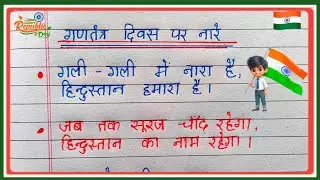 Republic
Day
गणतंत्र दिवस पर नारे
गली - गली में नारा है,
हिन्दुस्तान हमारा है।
जब तक सूरज चाँद रहेगा,
हिन्दुस्तान का नाम रहेगा।